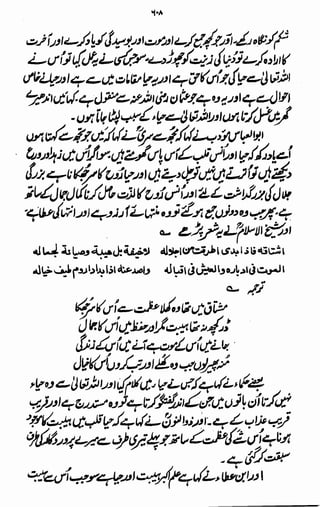 ۶۰۸
شکم کو نگاہ رکھے۔ اور جو کچھ جمع کرے اور موت اور بوسیدگی کو یاد کرے اور آخرت
کا ارادہ کرے تو دنیا کی زینت کو چھوڑ دے۔ سو جس نے یہ عمل کیا تو اُس نے
اللہ تعالیٰ سے حیا کی جو اُس کا حق ہے اور یہ حیا مقامات میں سے ہے اور حیائے خاص
احوال سے ہے اور یہ وہ ہے جو عثمان رضی اللہ عنہ سے منقول ہے۔ کہا میں اندھیرے
گھر میں غسل کرتا ہوں اور اللہ تعالیٰ سے حیا کے سبب لپٹا جاتا ہوں۔
ابو العباس مؤدب نے کہا کہ مجھ سے سری نے کہا کہ میں جو تجھ سے کہتا ہوں
اُسے یاد رکھ کہ حیا اور اُنس قلب کے آس پاس گھومتے ہیں۔ سو اگر اُس میں زہد اور ورع
دیکھتے ہیں تو اُترتے ہیں نہیں تو چل دیتے ہیں اور حیا روح کا سر جھکانا ہے بزرگی
جلال کی بزرگداشت کے لئے اور اُنس روح کا لذت حاصل کرنا کمال جمال کے ساتھ
ہے۔ پھر جب وہ دونوں جمع ہو گئے تو وہ منتہائے آرزو ہے اور انتہا کی عطا ہے۔
اور شیخ الاسلام نے یہ شعر پڑھے ؎
اشتاقہ فاذا ابدی اطرقت من اجلالہ لاخیفۃ بل ھیبۃ وصیانۃ لجمالہ
الموت فی ادبارہ والعیش فی اقبالہ واصد عنہ اذا بدا واروم طیف خیالہ
ترجمہ ؎
مشتاق میں تھا وہ کھلا عظمت سے اُس کا سر جھکا
ڈر کچھ نہ تھا ہیبت مگر اور حفظ میں اُس کا جمال
جانے میں اُس کے موت ہے آنے میں اُس کے زندگی
منہ پھیر لوں جب وہ کھلے اور تب کروں اُس کا خیال
بعضے حکما نے کہا ہے کہ جس نے حیا میں کلام کیا اور اللہ تعالیٰ سے وہ حیا
نہیں کرتا اُن باتوں میں جن کے اندر گفتگو کرتا ہے تو وہ مستدرج ہے اور قریب
قریب عذاب کے ہے۔ اور ذوالنونؒ نے کہا ہے کہ حیا قلب میں ہیبت کا موجود
ہونا ہے اُس شے کی عظمت کے ساتھ جو پہلے تیری طرف سے میرے پروردگار کی طرف
سبقت کر گئی ہے۔
اور ابن عطاء نے کہا ہے علم اکبر ہیبت اور حیا ہے سو جب اُس سے ہیبت